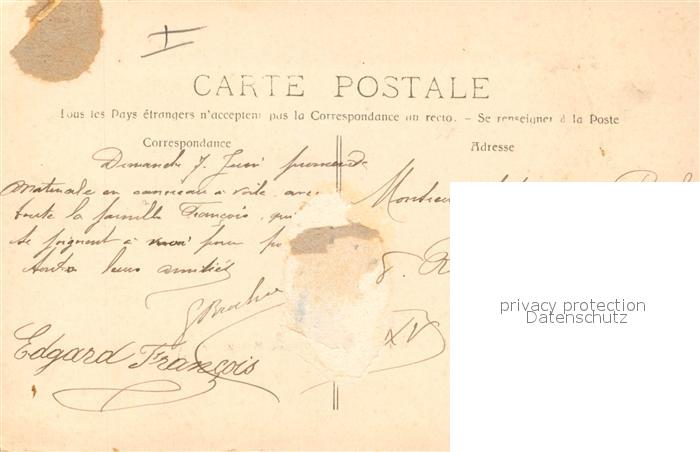 CARTE POSTALE
Tous les Pays étrangers n'acceptent pas la Correspondance au recto. - Se renseigner à la Poste
Correspondance
Adresse
Dimanche 7 Juin promenade
Matinale en canneau à voile avec
toute la famille François, qui
se joignent à moi pour
leurs amitiés
Edgard François
Monsieur
XV
privacy protection
Datenschutz